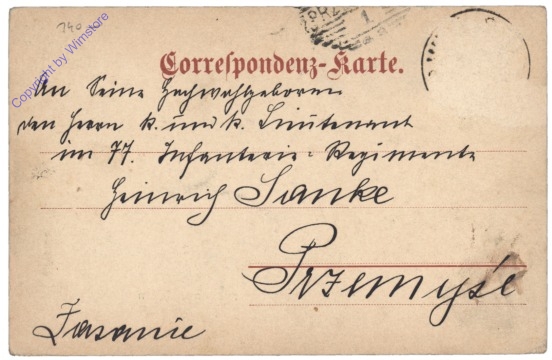 740
Copyright by Wimstore
Correspondenz-Karte.
An Seine Hochwohlgeboren
den Herrn k. und k. Lieutenant
im 77. Infanterie-Regimente
Heinrich Janke
Przemyśl
Zasanie